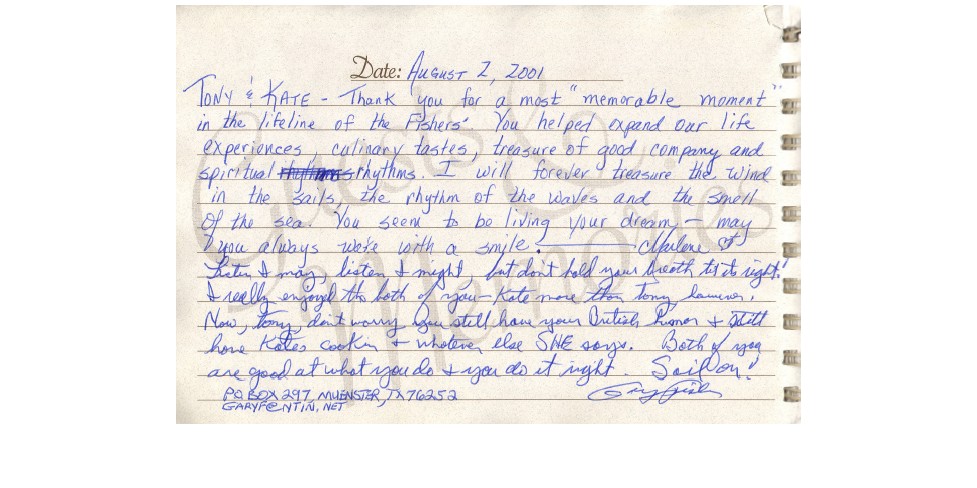 Guests &
Memories
Date: August 2, 2001
Tony & Kate - Thank you for a most "memorable moment"
in the lifeline of the Fishers'. You helped expand our life
experiences, culinary tastes, treasure of good company and
spiritual rhythms. I will forever treasure the wind
in the sails, the rhythm of the waves and the smell
of the sea. You seem to be living your dream - may
you always wake with a smile. Marlene
Listen I may, listen I might, but don't hold your breath til its right!
I really enjoyed the both of you - Kate more than Tony however.
Now, Tony, don't worry you still have your British humor & still
have Kates cookin & whatever else SHE says. Both of you
are good at what you do & you do it right. Sail on!
PO BOX 297, MUENSTER, TX 76252 Gary Fisher
GARYF@NTIN.NET